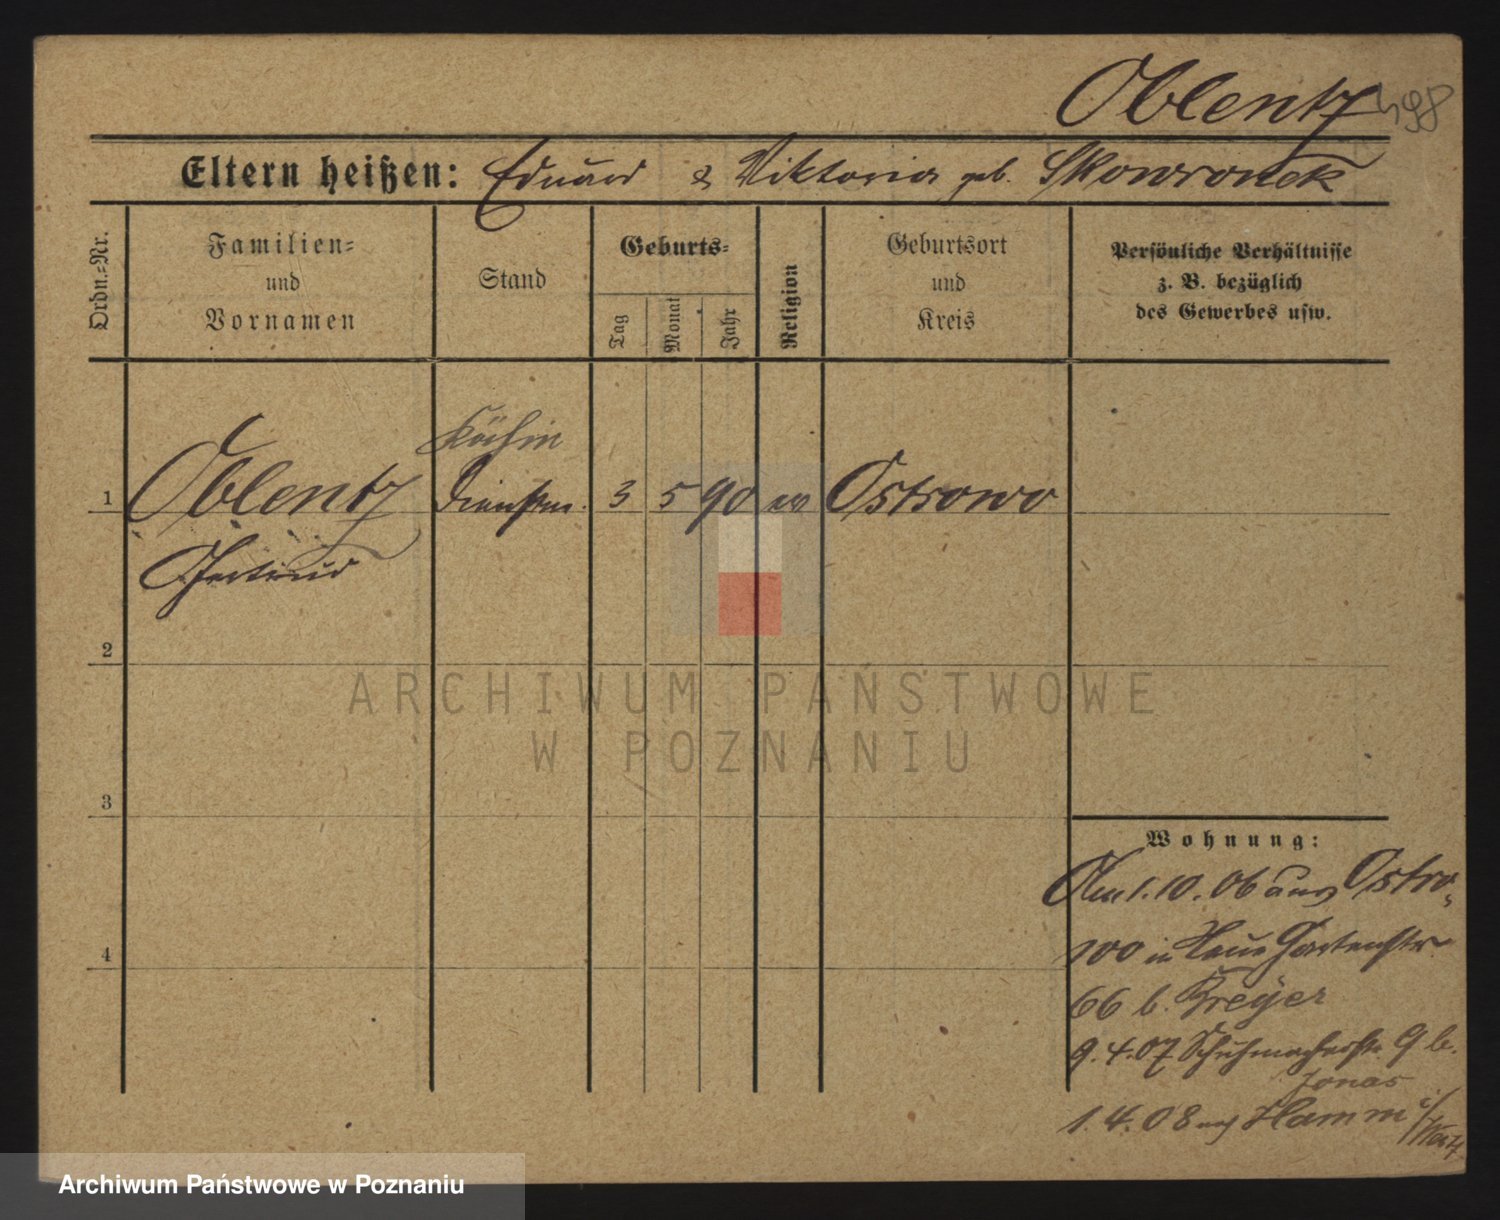 Oblentz 498
Eltern heißen: Eduard & Viktoria geb. Skowronek
Ordn.=Nr.
Familien=
und
Vornamen
Stand
Geburts=
Tag
Monat
Jahr
Religion
Geburtsort
und
Kreis
Persönliche Verhältnisse
z. B. bezüglich
des Gewerbes usw.
Köchin
1 Oblentz Dienstm. 3 5 90 ev Ostrowo
Gertrud
2
3
4
Wohnung:
1.10.06 aus Ostro-
wo in Neue Gartenstr
66 b. Kreyer
9.4.07 Schuhmacherstr 9 b.
Jonas
1.4.08 Hamm i/Westf
ARCHIWUM PAŃSTWOWE
W POZNANIU
Archiwum Państwowe w Poznaniu